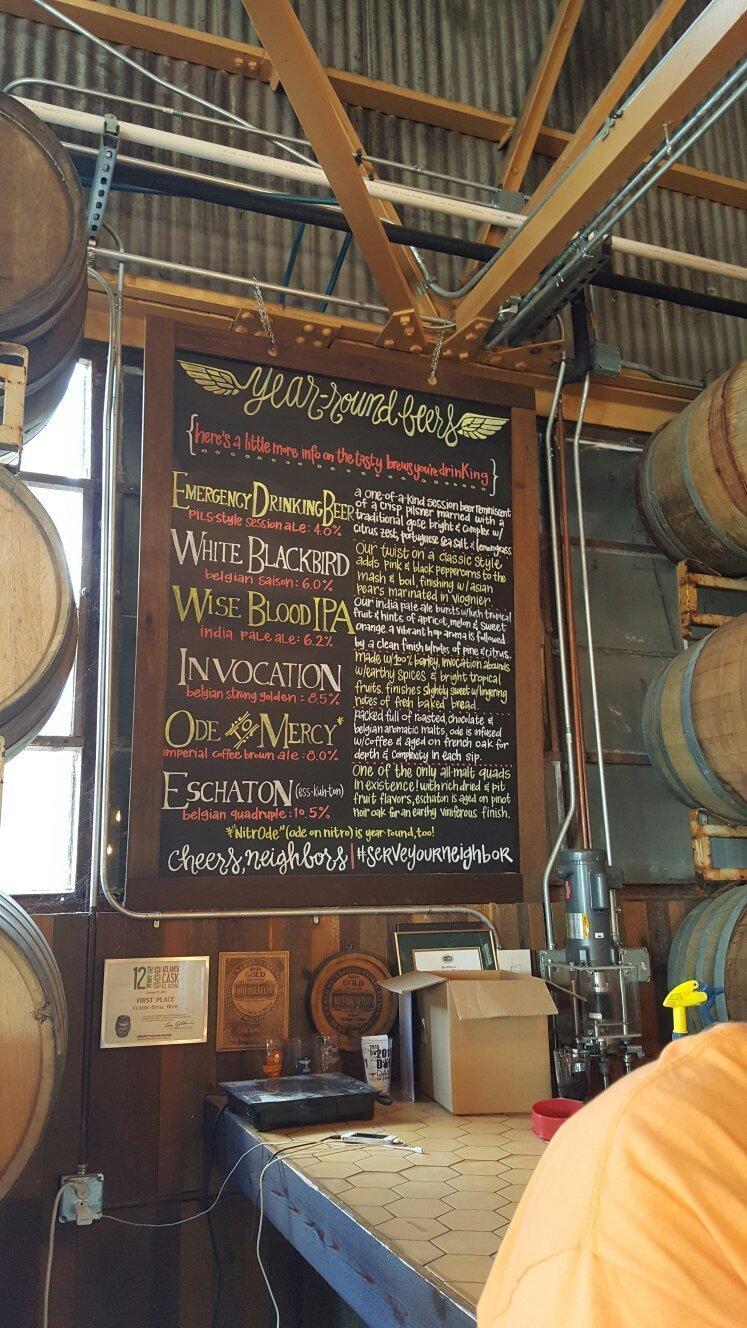 year-round beers
{here's a little more info on the tasty brews you're drinking}
EMERGENCY DRINKING BEER
PILS-style session ale: 4.0%
a one-of-a-kind session beer reminiscent
of a crisp pilsner married with a
traditional gose bright & complex w/
citrus zest, portuguese sea salt & lemongrass
WHITE BLACKBIRD
belgian saison: 6.0%
Our twist on a classic style
adds pink & black peppercorns to the
mash & boil, finishing w/asian
pears marinated in viognier.
WISE BLOOD IPA
india pale ale: 6.2%
Our india pale ale bursts w/lush tropical
fruit & hints of apricot, melon & sweet
orange. a vibrant hop aroma is followed
by a clean finish w/notes of pine & citrus.
INVOCATION
belgian strong golden: 8.5%
made w/100% barley, invocation abounds
w/earthy spices & bright tropical
fruits. finishes slightly sweet w/lingering
notes of fresh baked bread.
ODE TO MERCY*
imperial coffee brown ale: 8.0%
packed full of roasted, chocolate &
belgian aromatic malts, ode is infused
w/coffee & aged on french oak for
depth & complexity in each sip.
ESCHATON (ess-kuh-ton)
belgian quadruple: 10.5%
One of the only all-malt quads
in existence! with rich dried & pit
fruit flavors, eschaton is aged on pinot
noir oak for an earthy viniferous finish.
*"NitrOde" (ode on nitro) is year-round, too!
cheers, neighbors | #serveyourneighbor
12
ATLANTA
CASK
FIRST PLACE
CLASSIC-STYLE BEER
GOLD
GOLD